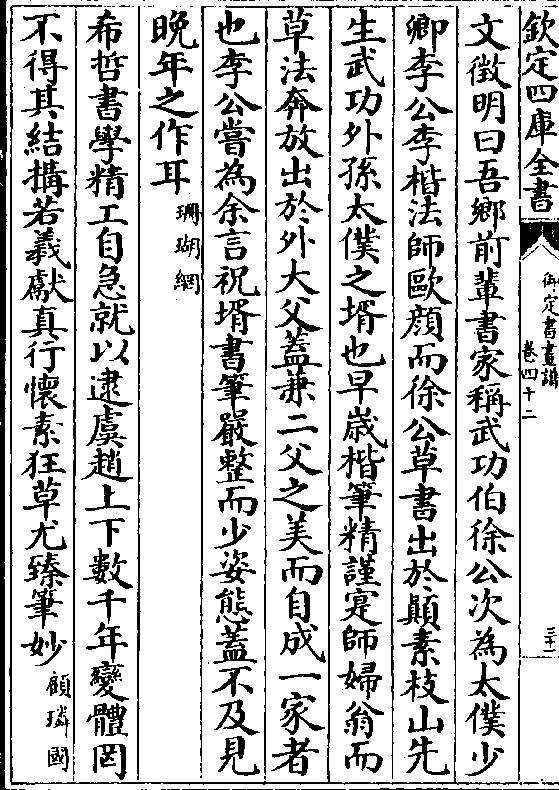 欽定四庫全書
御定書畫譜
卷四十二
三十一
文徵明曰吾鄉前輩書家稱武功伯徐公次為太僕少
卿李公李楷法師歐顔而徐公草書出於顛素枝山先
生武功外孫太僕之壻也早嵗楷筆精謹寔師婦翁而
草法奔放出於外大父蓋兼二父之美而自成一家者
也李公嘗為余言祝壻書筆嚴整而少姿態蓋不及見
晚年之作耳珊瑚網
希哲書學精工自急就以逮虞趙上下數千年變體罔
不得其結搆若羲獻真行懷素狂草尤臻筆妙顧璘國